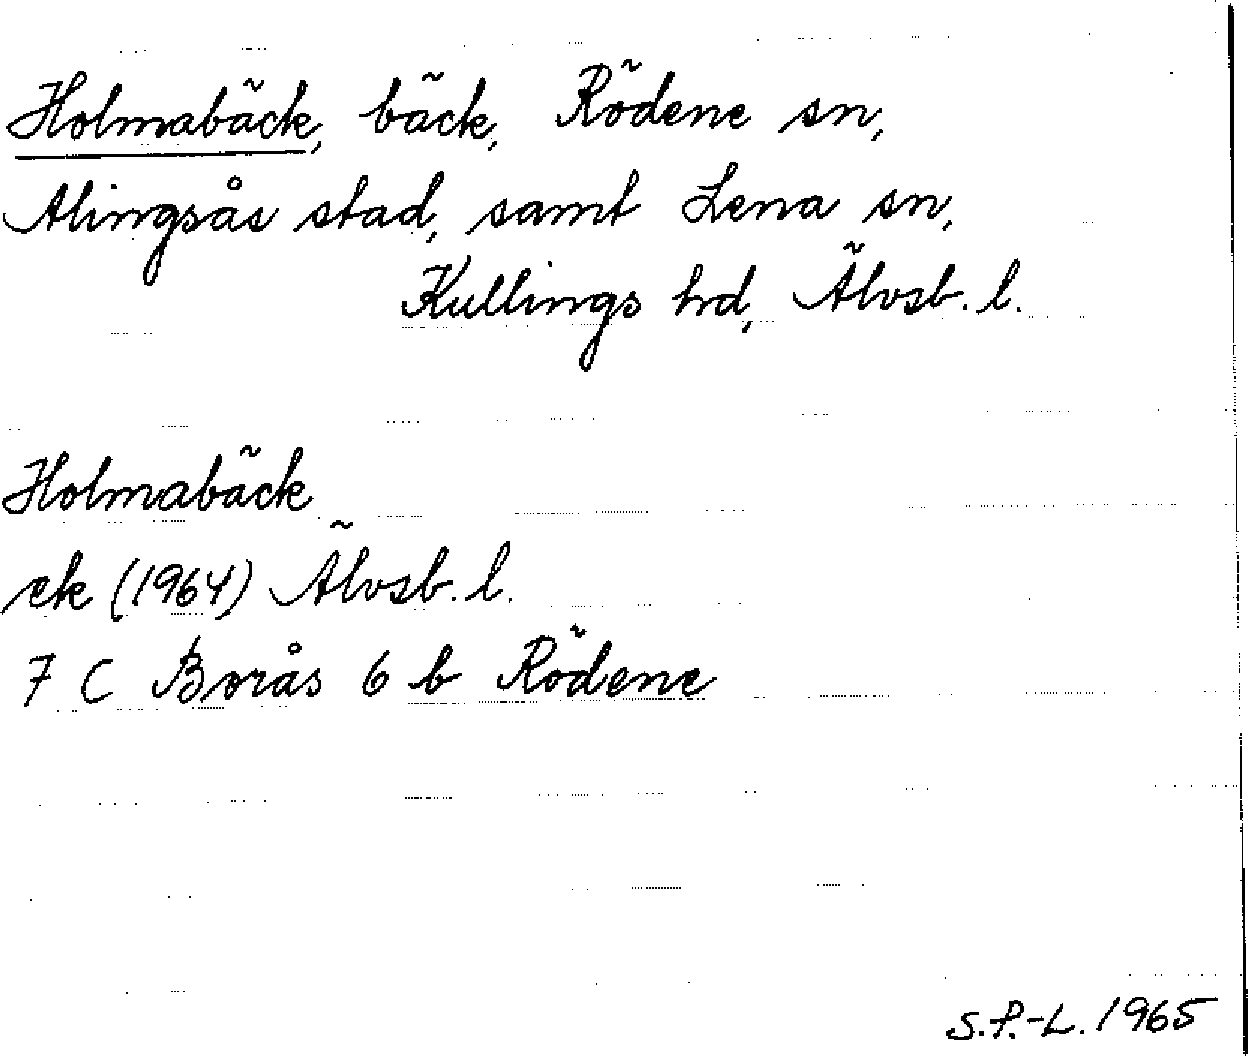 Holmabäck, bäck, Rödene sn,
Alingsås stad, samt Lena sn,
Kullings hd, Älvsb. l.
Holmabäck
ek (1964) Älvsb. l.
7 C Borås 6 b Rödene
S.P.-L. 1965